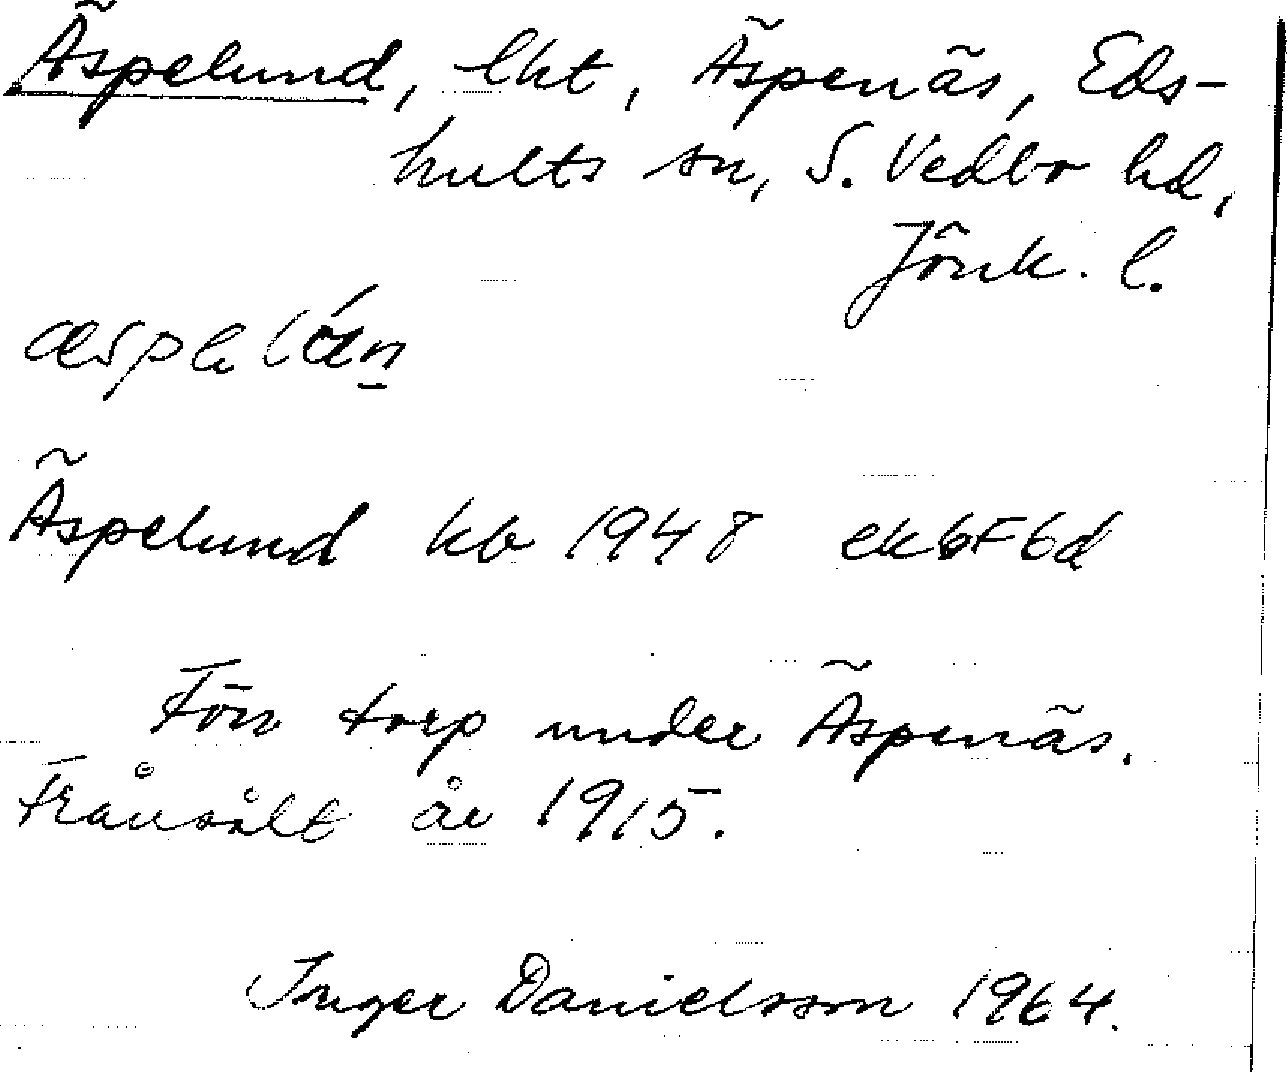 Äspelund, lht, Äspenäs, Eds-
hults sn, S. Vedbo hd,
Jönk. l.
Äspelund kb 1948 ek 6F6d
Förr torp under Äspenäs.
Frånsålt år 1915.
Inger Danielsson 1964.